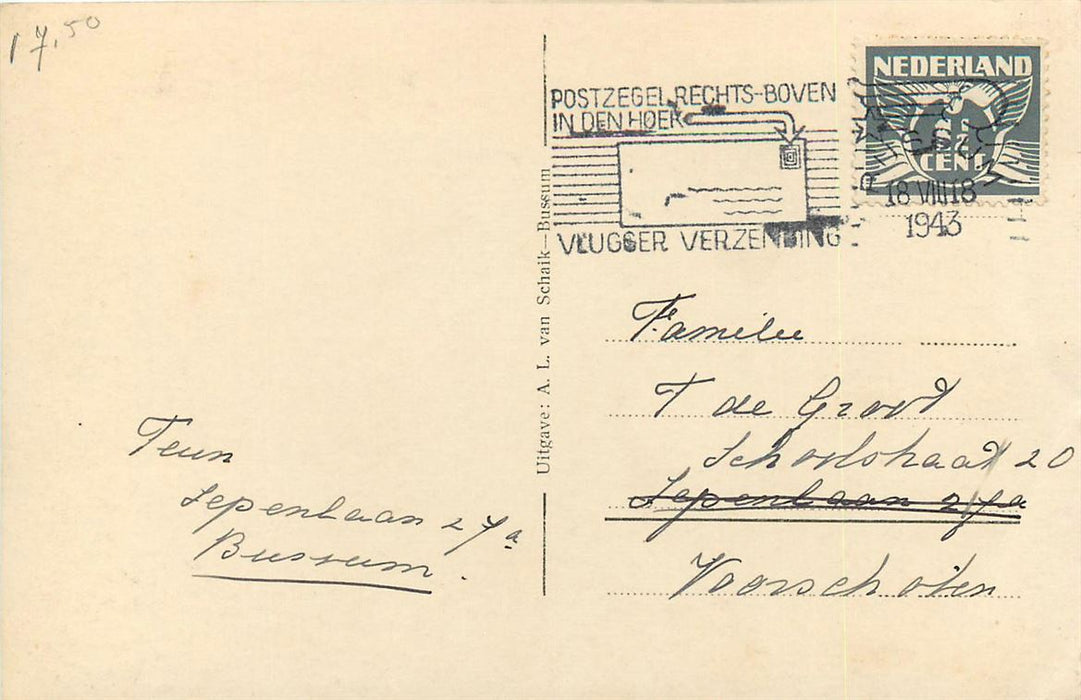 17,50
POSTZEGEL RECHTS-BOVEN
IN DEN HOEK
VLUGGER VERZENDING
NEDERLAND
CENT
18 VIII 18
1943
Uitgave: A. L. van Schaik—Bussum
Teun
Iepenlaan 27a
Bussum.
Familie
T de Groot
Schoolstraat 20
Iepenlaan 27a
Voorschoten